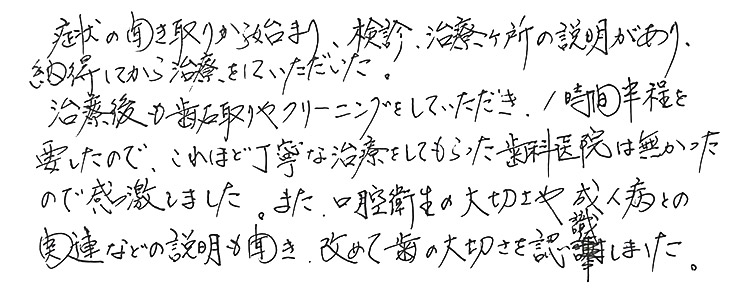 症状の聞き取りから始まり、検診、治療ヶ所の説明があり、
納得してから治療をしていただいた。
治療後も歯石取りやクリーニングをしていただき、1時間半程を
要したので、これほど丁寧な治療をしてもらった歯科医院は無かった
ので感激しました。また、口腔衛生の大切さや成人病との
関連などの説明も聞き、改めて歯の大切さを認識しました。